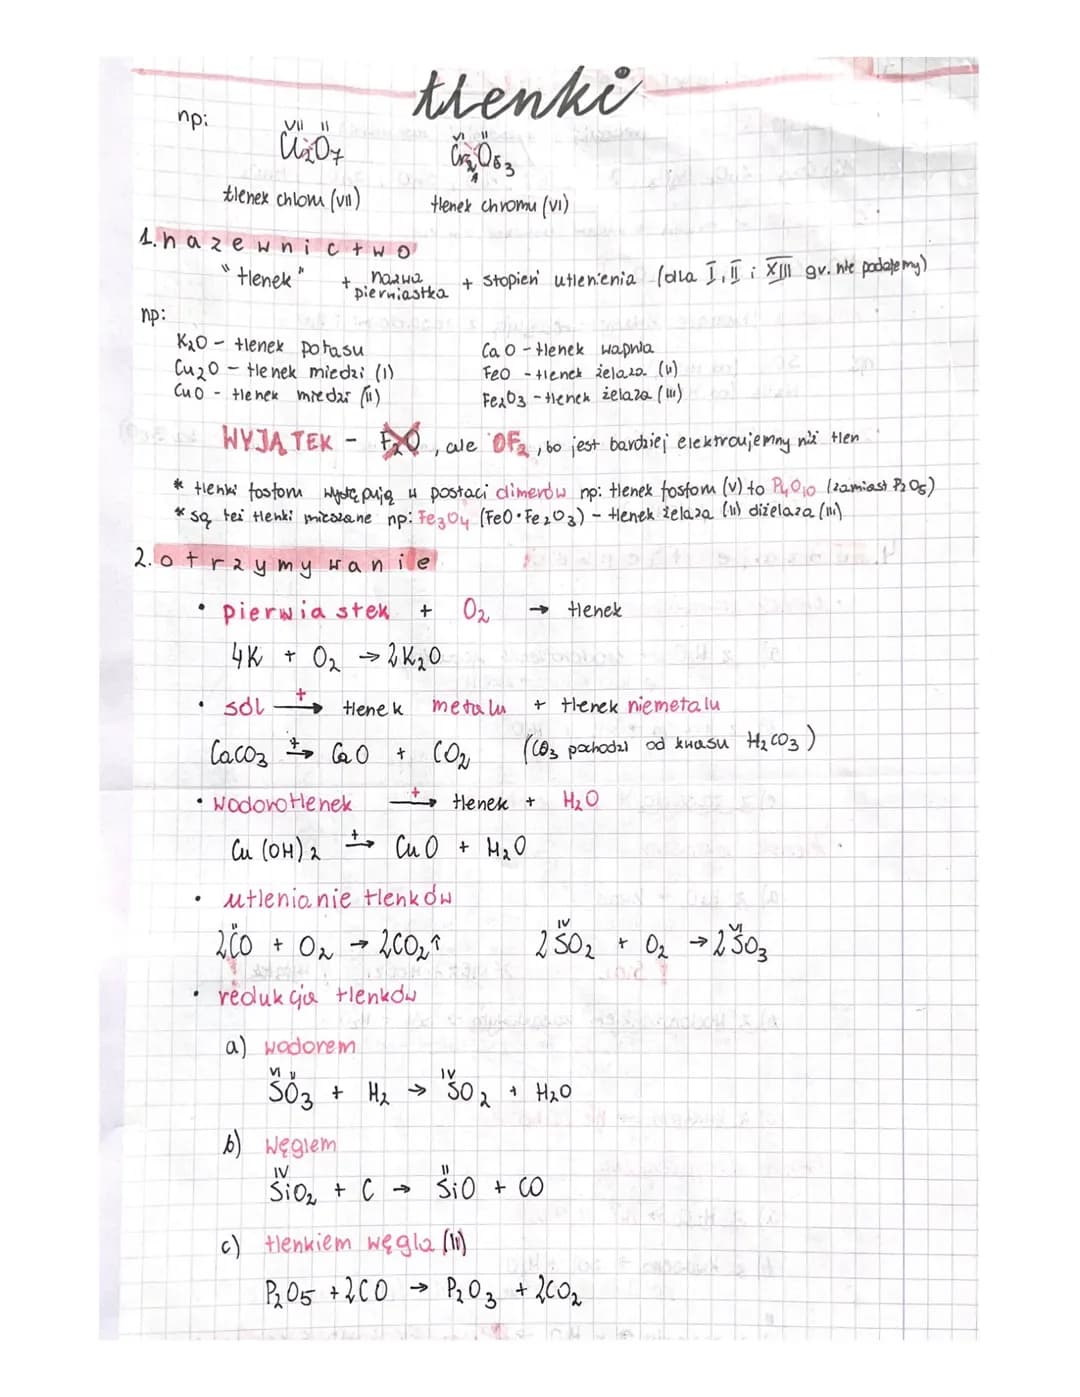 tlenki
np:
VII II
Cl₂O₇
VI II
Cr₂O₆ 3
1
tlenek chloru (VII)
tlenek chromu (VI)
1. nazewnictwo
"tlenek" + nazwa pierwiastka + stopień utlenienia (dla I, II i XIII gr. nie podajemy)
np:
K₂O – tlenek potasu
CaO – tlenek wapnia
Cu₂O – tlenek miedzi (I)
FeO – tlenek żelaza (II)
CuO – tlenek miedzi (II)
Fe₂O₃ – tlenek żelaza (III)
WYJĄTEK – F₂O, ale OF₂, bo jest bardziej elektroujemny niż tlen
* tlenki fosforu występują w postaci dimerów np: tlenek fosforu (V) to P₄O₁₀ (zamiast P₂O₅)
* są też tlenki mieszane np: Fe₃O₄ (FeO·Fe₂O₃) – tlenek żelaza (II) diżelaza (III)
2. otrzymywanie
• pierwiastek + O₂ → tlenek
4K + O₂ → 2K₂O
• sól –t→ tlenek metalu + tlenek niemetalu
CaCO₃ –t→ CaO + CO₂ (CO₃ pochodzi od kwasu H₂CO₃)
• wodorotlenek –t→ tlenek + H₂O
Cu(OH)₂ –t→ CuO + H₂O
• utlenianie tlenków
II
2CO + O₂ → 2CO₂↑
IV VI
2SO₂ + O₂ → 2SO₃
• redukcja tlenków
a) wodorem
VI II IV
SO₃ + H₂ → SO₂ + H₂O
b) węglem
IV II
SiO₂ + C → SiO + CO
c) tlenkiem węgla (II)
P₂O₅ + 2CO → P₂O₃ + 2CO₂